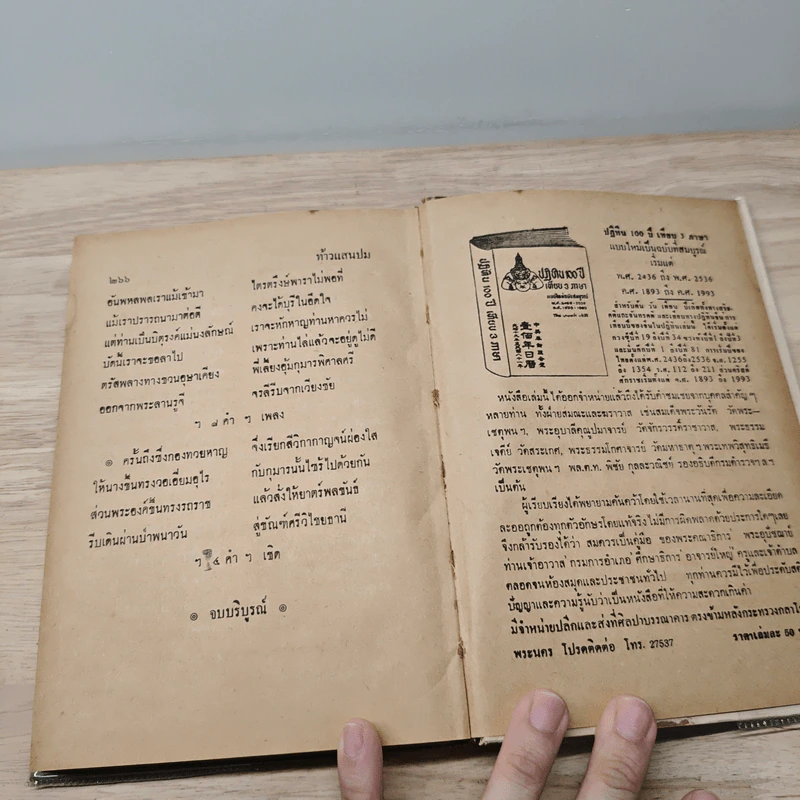 ๒๖๖
ท้าวแสนปม
อันพหลพลเราแม้เข้ามา ไตรตรึงษ์พาราไม่พอที่
แม้เราปรารถนามาต่อตี คงจะได้บุรีในอึดใจ
แต่ท่านเป็นบิตุรงค์แม่นงลักษณ์ เราจะหักหาญท่านหาควรไม่
บัดนี้เราจะขอลาไป เพราะท่านไล่แล้วจะอยู่ดูไม่ดี
ตรัสพลางทางชวนอุษาเคียง พี่เลี้ยงอุ้มกุมารพิศาลศรี
ออกจากพระลานรูจี จรลีรีบจากเวียงชัย
ฯ ๘ คำ ฯ เพลง
๏ ครั้นถึงซึ่งกองทวยหาญ จึ่งเรียกสีวิกากาญจน์ผ่องใส
ให้นางขึ้นทรงวอเอี่ยมอุไร กับกุมารนั้นไซร้ไปด้วยกัน
ส่วนพระองค์ขึ้นทรงรถราช แล้วสั่งให้ยาตร์พลขันธ์
รีบเดินผ่านป่าพนาวัน สู่ขัณฑ์ศรีวิไชยธานี
ฯ ๔ คำ ฯ เชิด
๏ จบบริบูรณ์ ๏
ปฏิทิน ๑๐๐ ปี เทียบ ๓ ภาษา
ปฏิทิน ๑๐๐ ปี
เทียบ ๓ ภาษา
壹佰年日曆
ปฏิทิน 100 ปี เทียบ 3 ภาษา
แบบใหม่เป็นฉบับที่สมบูรณ์
เริ่มแต่
พ.ศ. 2436 ถึง พ.ศ. 2536
ค.ศ. 1893 ถึง ค.ศ. 1993
สำหรับค้น วัน เดือน
1 ถึง 81 การ เปิดของ
ไทยตั้งแต่พ.ศ. 2436ถึง2536 จ.ศ. 1255
ถึง 1354 ร.ศ. 112 ถึง 211 ส่วนคริสต์
ศักราชเริ่มตั้งแต่ ค.ศ. 1893 ถึง 1993
หนังสือเล่มนี้ได้ออกจำหน่ายแล้วถึงได้รับคำชมเชยจากบุคคลสำคัญๆ
หลายท่าน ทั้งฝ่ายสมณะและฆราวาส เช่นสมเด็จพระวันรัต วัดพระ–
เชตุพนฯ, พระอุบาลีคุณูปมาจารย์ วัดจักรวรรดิ์ราชาวาส, พระธรรม
เจดีย์ วัดสระเกศ, พระธรรมโกศาจารย์ วัดมหาธาตุฯ พระเทพวิสุทธิเมธี
วัดพระเชตุพนฯ พล.ต.ท. พิชัย กุลละวณิชย์ รองอธิบดีกรมตำรวจ ฯลฯ
เป็นต้น
ผู้เรียบเรียงได้พยายามค้นคว้าโดยใช้เวลานานที่สุดเพื่อความละเอียด
ละออถูกต้องทุกตัวอักษรโดยแท้จริง ไม่มีการผิดพลาดด้วยประการใดๆเลย
จึงกล้ารับรองได้ว่า สมควรเป็นคู่มือ ของพระคณาธิการ พระอุปัชฌาย์
ท่านเจ้าอาวาส กรมการอำเภอ ศึกษาธิการ อาจารย์ใหญ่ ครูและเจ้าตำบล
ตลอดจนห้องสมุดและประชาชนทั่วไป ทุกท่านควรมีไว้เพื่อประดับสติ
ปัญญาและความรู้นับว่าเป็นหนังสือที่ให้ความสะดวกเกินค่า
มีจำหน่ายปลีกและส่งที่ศิลปาบรรณาคาร ตรงข้ามหลังกระทรวงกลาโ
พระนคร โปรดติดต่อ โทร. 27537 ราคาเล่มละ 50